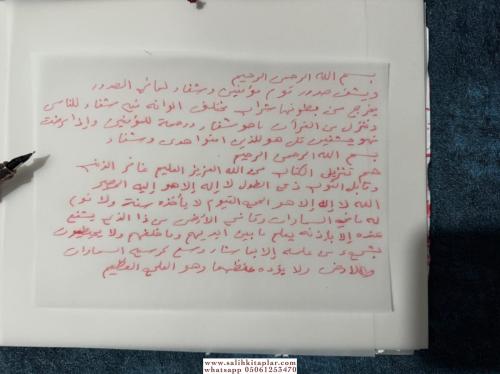 بسم الله الرحمن الرحيم
ويشف صدور قوم مؤمنين وشفاء لما في الصدور
يخرج من بطونها شراب مختلف الوانه فيه شفاء للناس
وننزل من القرآن ما هو شفاء ورحمة للمؤمنين وإذا مرضت
فهو يشفين قل هو للذين امنوا هدى وشفاء
بسم الله الرحمن الرحيم
حم تنزيل الكتاب من الله العزيز العليم غافر الذنب
وقابل التوب ذي الطول لا إله إلا هو إليه المصير
الله لا إله إلا هو الحي القيوم لا يأخذه سنة ولا نوم
له ما في السماوات وما في الأرض من ذا الذي يشفع
عنده إلا بإذنه يعلم ما بين ايديهم وما خلفهم ولا يحيطون
بشيء من علمه إلا بما شاء وسع كرسيه السماوات
والأرض ولا يؤده حفظهما وهو العلي العظيم
www.salihkitaplar.com
whatsapp 05061253470